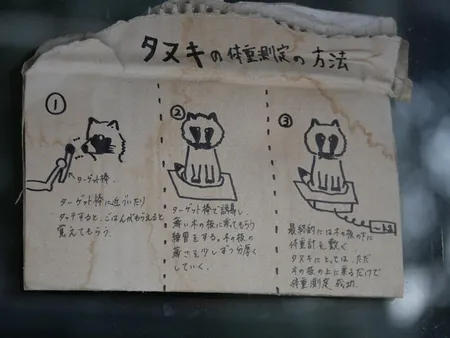 タヌキの体重測定の方法
①
ターゲット棒
ターゲット棒に近づいたり
タッチすると、ごはんがもらえると
覚えてもらう。
②
ターゲット棒で誘導し
薄い木の板に乗ってもらう
練習をする。木の板の
薄さを少しずつ分厚く
していく。
③
最終的には木の板の下に
体重計を敷く
タヌキにとっては、ただ
その板の上に乗るだけで
体重測定 成功